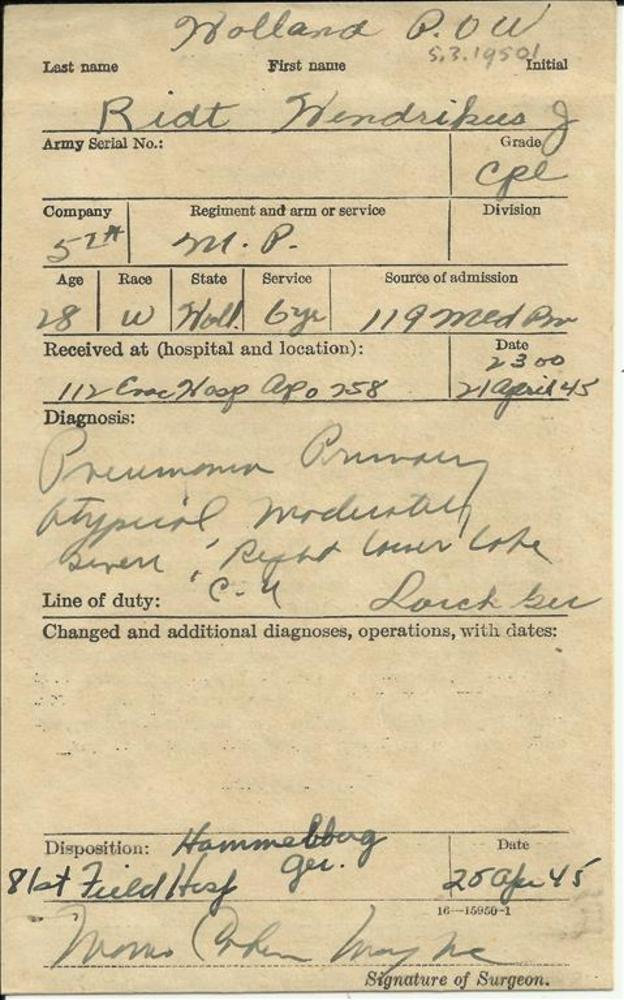 Holland P.O.W
5.3.1950!
Last name First name Initial
Ridt Hendrikus J
Army Serial No.: Grade
Cpl
Company Regiment and arm or service Division
M. P.
Age Race State Service Source of admission
28 W Holl. 6 yr 119 Med Bn
Received at (hospital and location): Date
2300
112 Evac Hosp APO 758 21 April 45
Diagnosis:
Pneumonia Primary
Atypical Moderately
Severe, Right lower lobe
Line of duty:
Lorch Ger
Changed and additional diagnoses, operations, with dates:
Disposition: Hammelburg Date
Ger.
81st Field Hosp 25 Apr 45
16—15950-1
Signature of Surgeon.